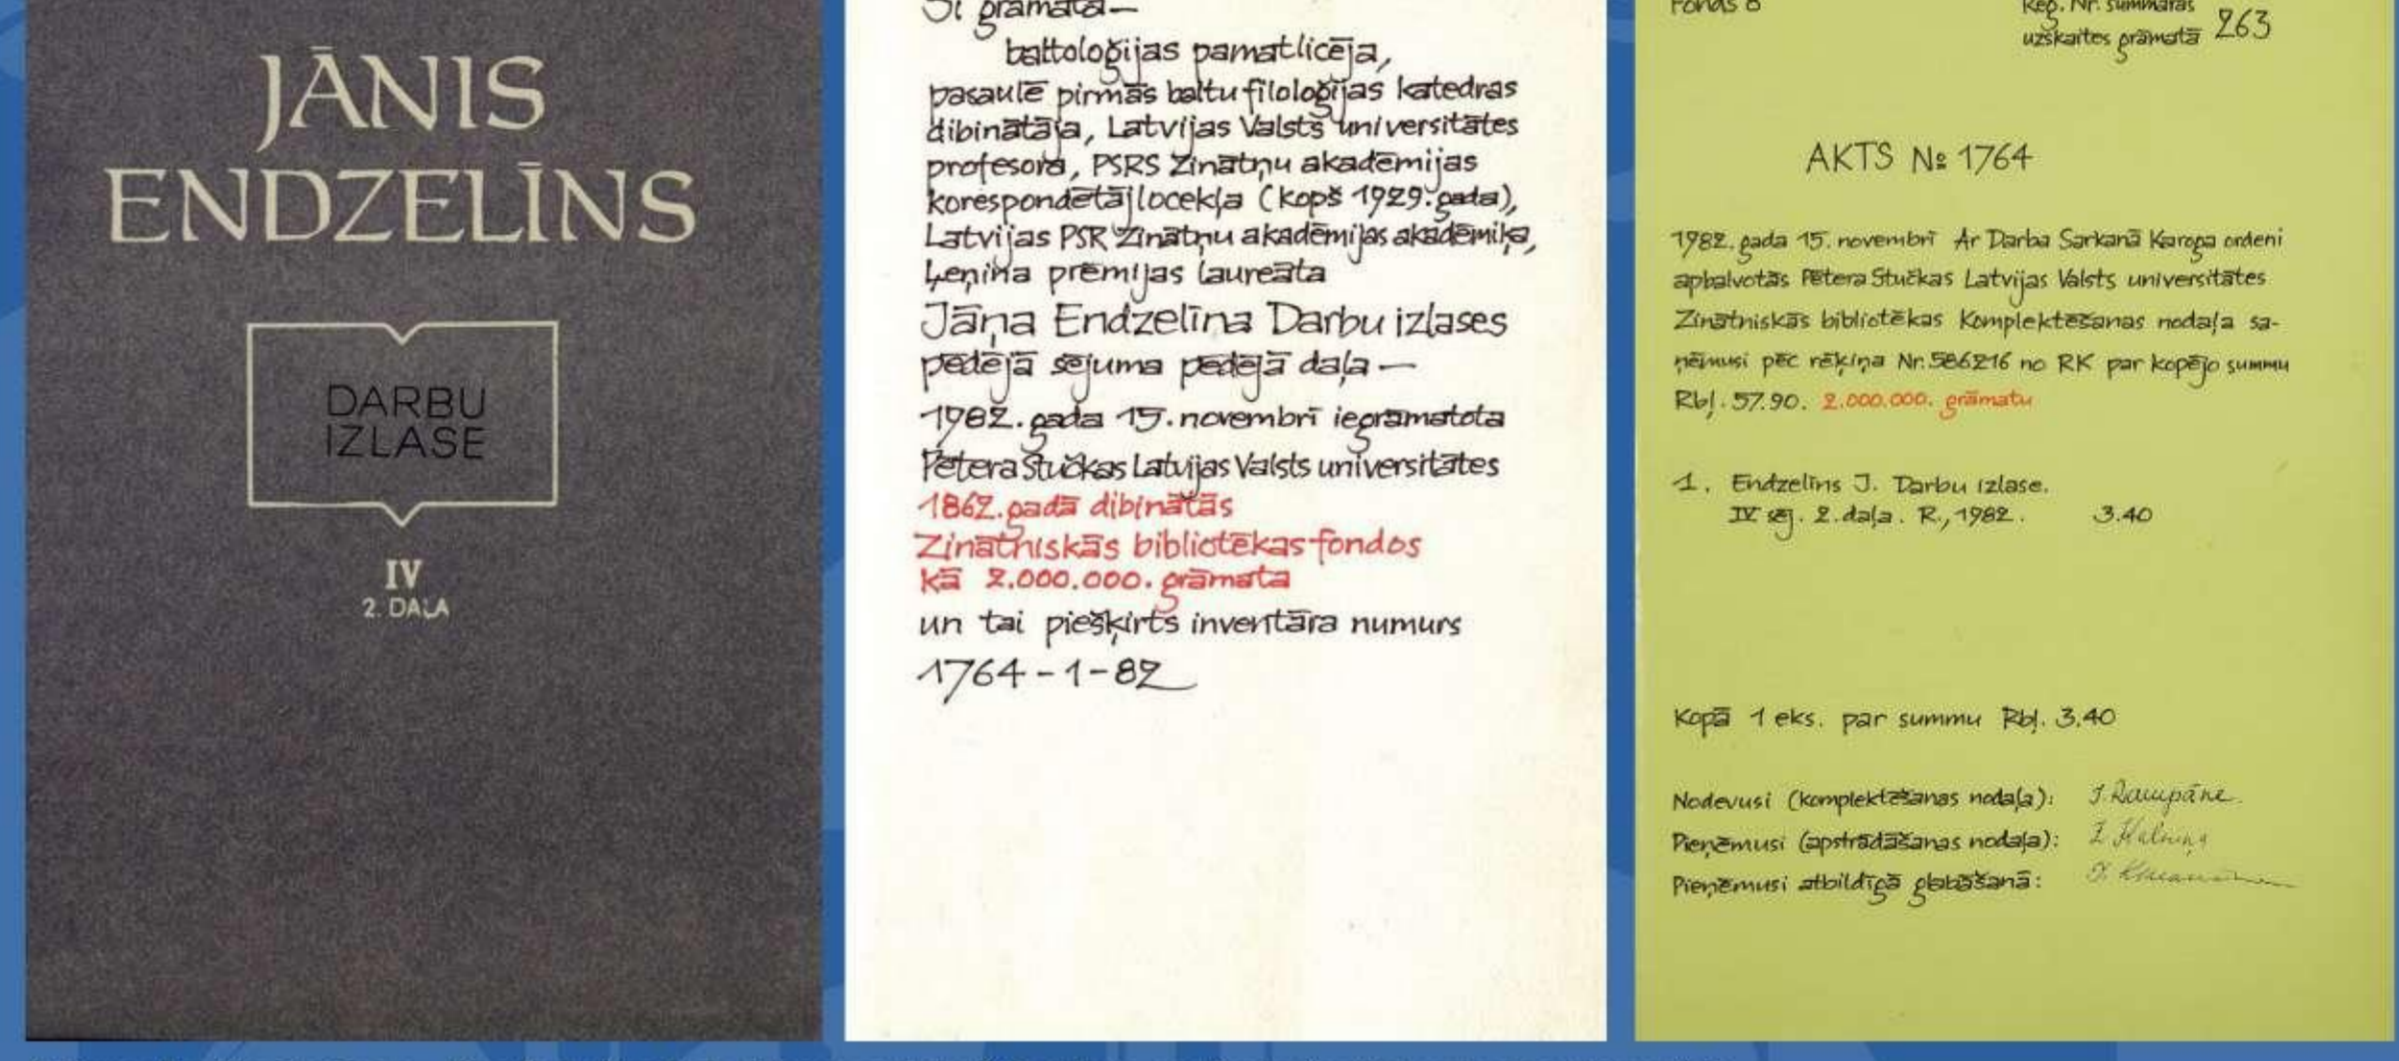 JĀNIS
ENDZELĪNS
DARBU
IZLASE
IV
2. DAĻA
Šī grāmata—
baltoloģijas pamatlicēja,
pasaulē pirmās baltu filoloģijas katedras
dibinātāja, Latvijas Valsts universitātes
profesora, PSRS Zinātņu akadēmijas
korespondētājlocekļa (kopš 1929. gada),
Latvijas PSR Zinātņu akadēmijas akadēmiķa,
Ļeņina prēmijas laureāta
Jāņa Endzelīna Darbu izlases
pēdējā sējuma pēdējā daļa —
1982. gada 15. novembrī iegrāmatota
Pētera Stučkas Latvijas Valsts universitātes
1862. gadā dibinātās
Zinātniskās bibliotēkas fondos
kā 2.000.000. grāmata
un tai piešķirts inventāra numurs
1764-1-82
Fonds 6
Reģ. Nr. summārās
uzskaites grāmatā 263
AKTS № 1764
1982. gada 15. novembrī Ar Darba Sarkanā Karoga ordeni
apbalvotās Pētera Stučkas Latvijas Valsts universitātes
Zinātniskās bibliotēkas Komplektēšanas nodaļa sa-
ņēmusi pēc rēķina Nr. 586216 no RK par kopējo summu
Rbļ. 57.90. 2.000.000. grāmatu
1. Endzelīns J. Darbu izlase.
IV sēj. 2. daļa. R., 1982. 3.40
Kopā 1 eks. par summu Rbļ. 3.40
Nodevusi (komplektēšanas nodaļa): J. Raupāne
Pieņēmusi (apstrādāšanas nodaļa): Kalniņa
Pieņēmusi atbildīgā glabāšanā: